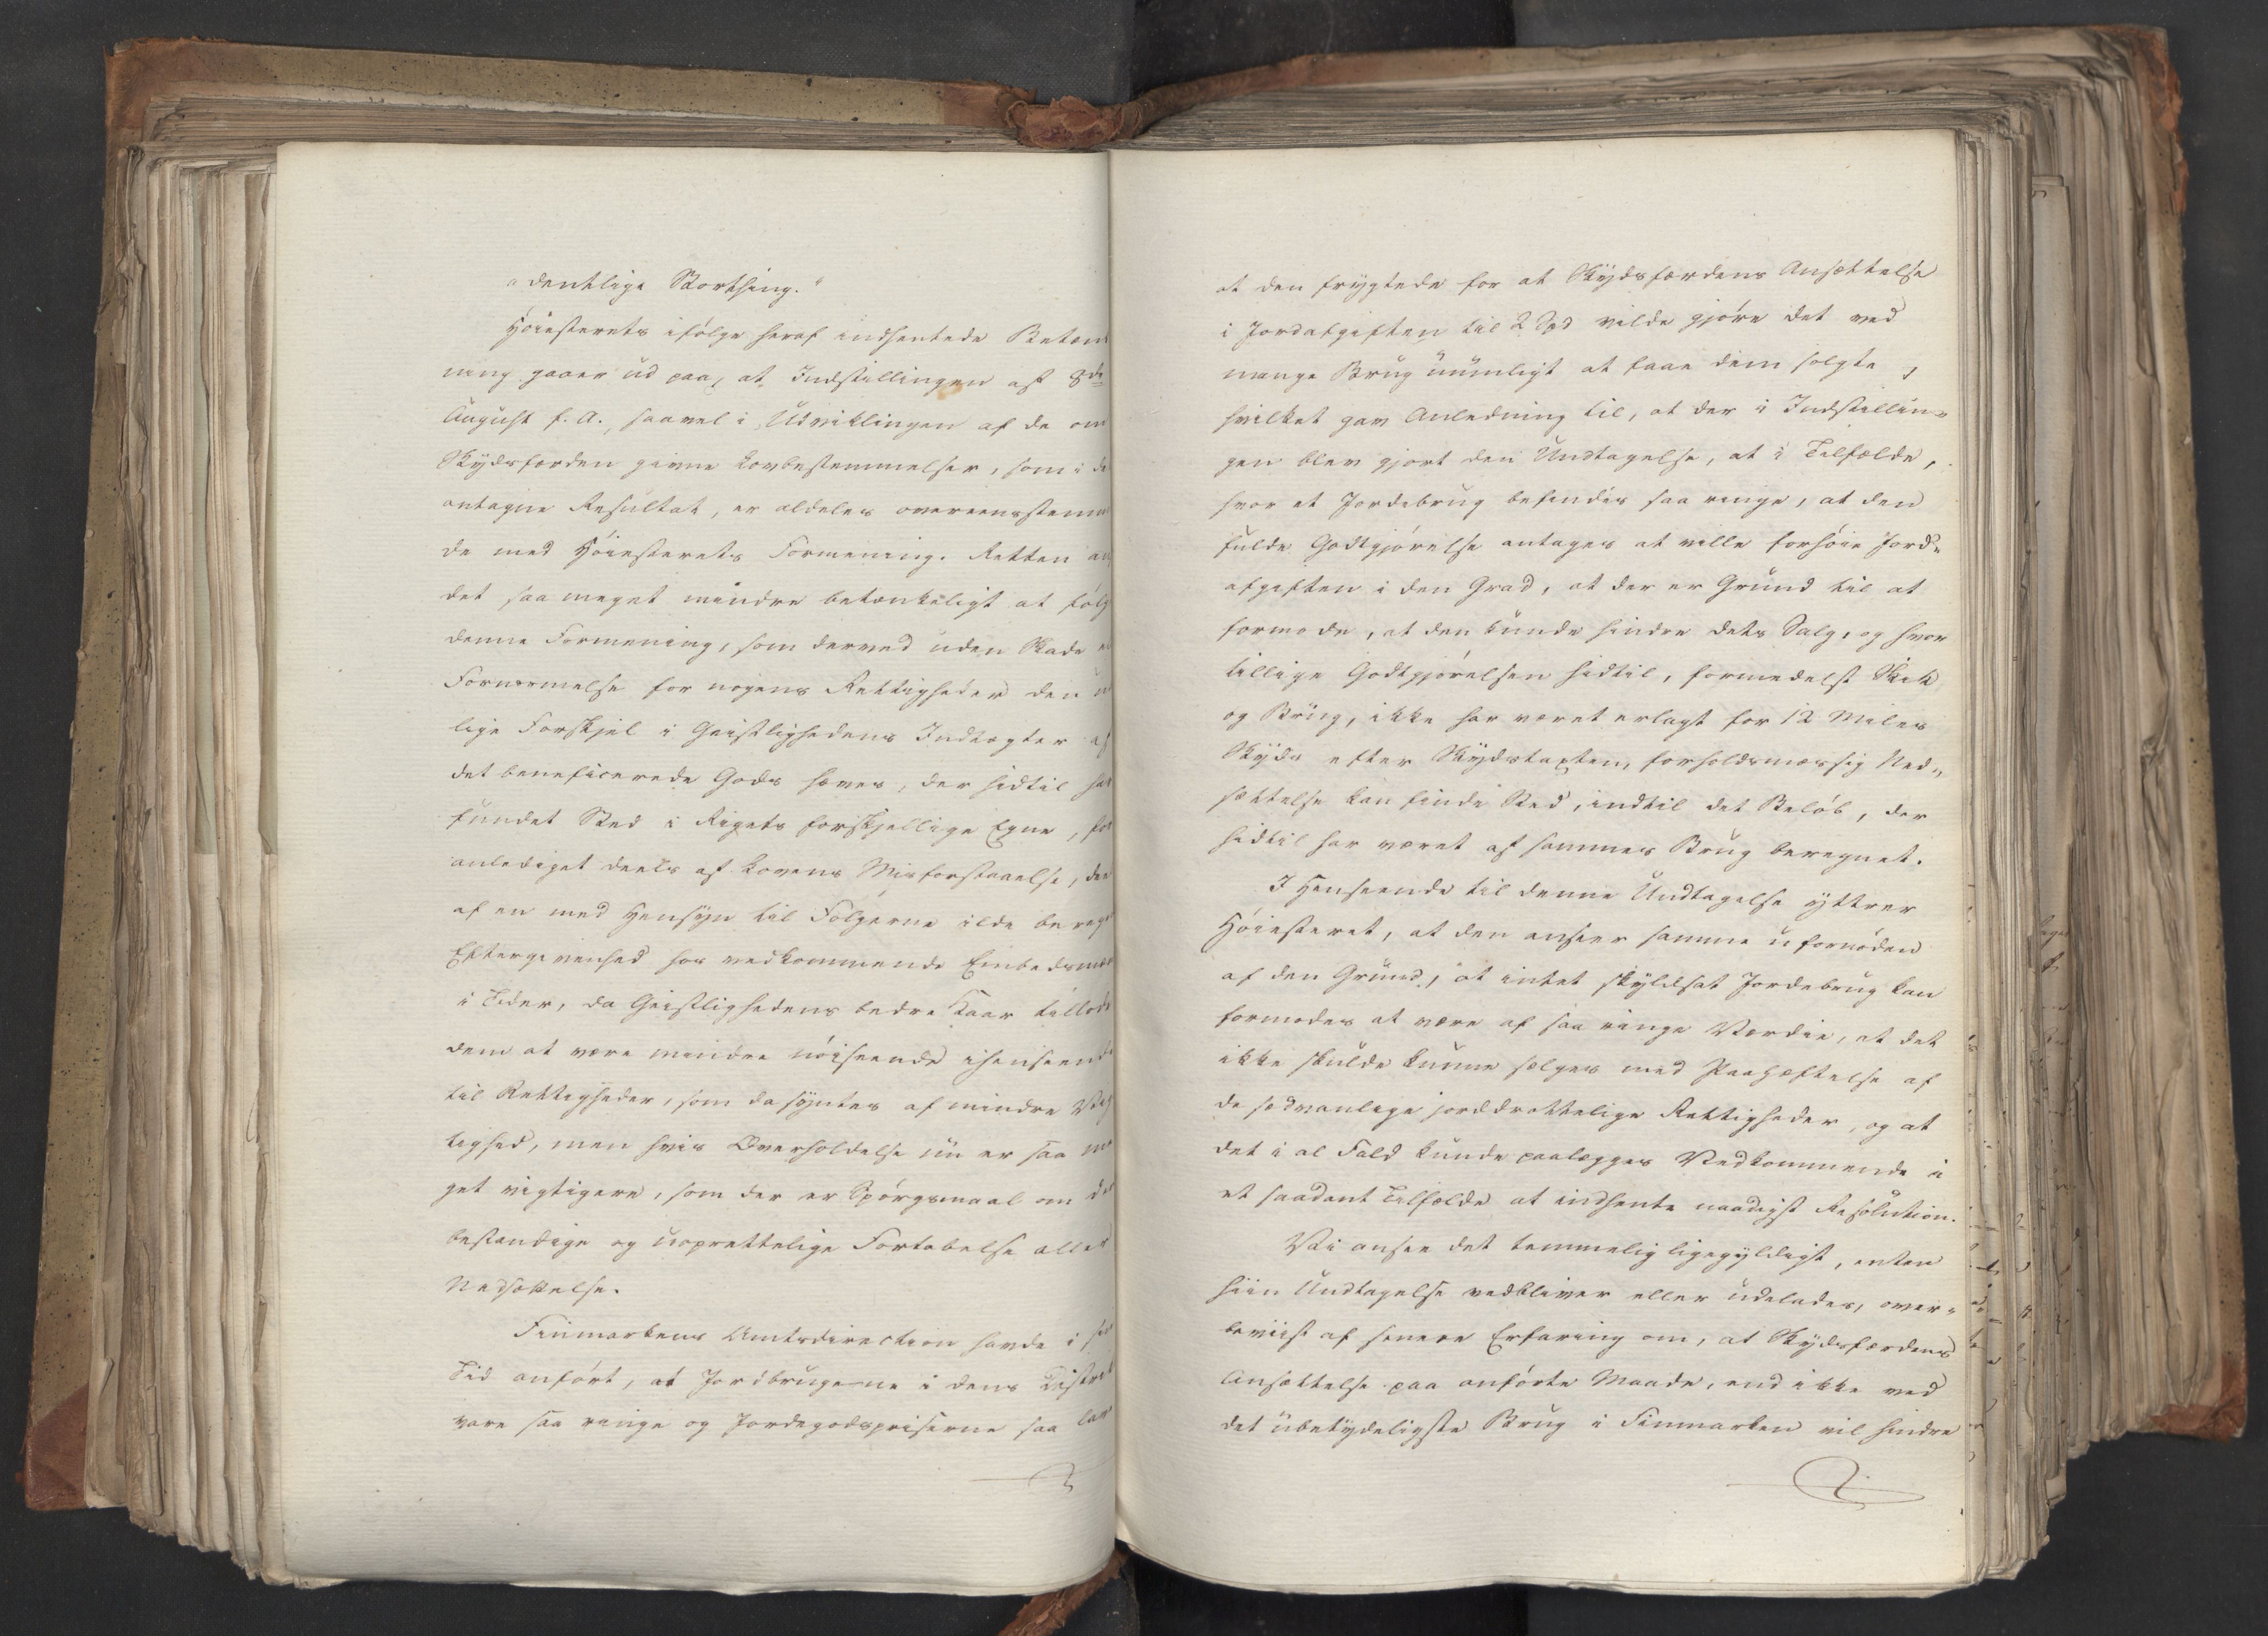 "dentlige Storthing."
Høiesterets ifølge heraf indhentede Betænk
ning gaaer ud paa, at Indstillingen af 8de
August f. A., saavel i Udviklingen af de om
Skydsfærden givne Lovbestemmelser, som i de
antagne Resultat, er aldeles overeensstemm
de med Høiesterets Formening. Retten an
det saa meget mindre betænkeligt at følg
denne Formening, som derved uden Skade el
Fornærmelse for nogens Rettigheder den u
lige Forskjel i Geistlighedens Indtægter af
det beneficerede Gods hæves, der hidtil har
fundet Sted i Rigets forskjellige Egne, for
anlediget deels af Lovens Misforstaaelse, dee
af en med Hensyn til Følgerne ilde beregn
Eftergivenhed hos vedkommende Embedsmæn
i Tider, da Geistlighedens bedre Kaar tillod
dem at være mindre nøiseende ihenseend
til Rettigheder, som da syntes af mindre Vig
tighed, men hvis Overholdelse nu er saa me
get vigtigere, som der er Spørgsmaal om de
bestandige og uoprettelige Fortabelse eller
Nedsættelse.
Finmarkens Amtsdirection havde i sin
Tid anført, at Jordbrugene i dens District
vare saa ringe og Jordegodspriserne saa lav
at den frygtede for at Skydsfærdens Ansættelse
i Jordafgiften til 2 Spd vilde gjøre det ved
mange Brug uumligt at faae dem solgte,
hvilket gav Anledning til, at der i Indstillin-
gen blev gjort den Undtagelse, at i Tilfælde,
hvor et Jordebrug befindes saa ringe, at den
fulde Godtgjørelse antages at ville forhøie Jord-
afgiften i den Grad, at der er Grund til at
formode, at den kunde hindre dets Salg, og hvor
tillige Godtgjørelsen hidtil, formedelst Skik
og Brug, ikke har været erlagt for 12 Miles
Skyds efter Skydstaxten, forholdsmæssig Ned-
sættelse kan finde Sted, indtil det Beløb, der
hidtil har været af sammes Brug beregnet.
I Henseende til denne Undtagelse yttrer
Høiesteret, at den anseer samme ufornøden
af den Grund, at intet skyldsat Jordebrug kan
formodes at være af saa ringe Værdie, at det
ikke skulde kunne sælges med Paahæftelse af
de sædvanlige jorddrottelige Rettigheder, og at
det i al Fald kunde paalægges Vedkommende i
et saadant Tilfælde at indhente naadigst Resolution.
Vi ansee det temmelig ligegyldigt, enten
hiin Undtagelse vedbliver eller udelades, over-
beviist af senere Erfaring om, at Skydsfærdens
Ansættelse paa anførte Maade, end ikke ved
det ubetydeligste Brug i Finmarken vil hindre